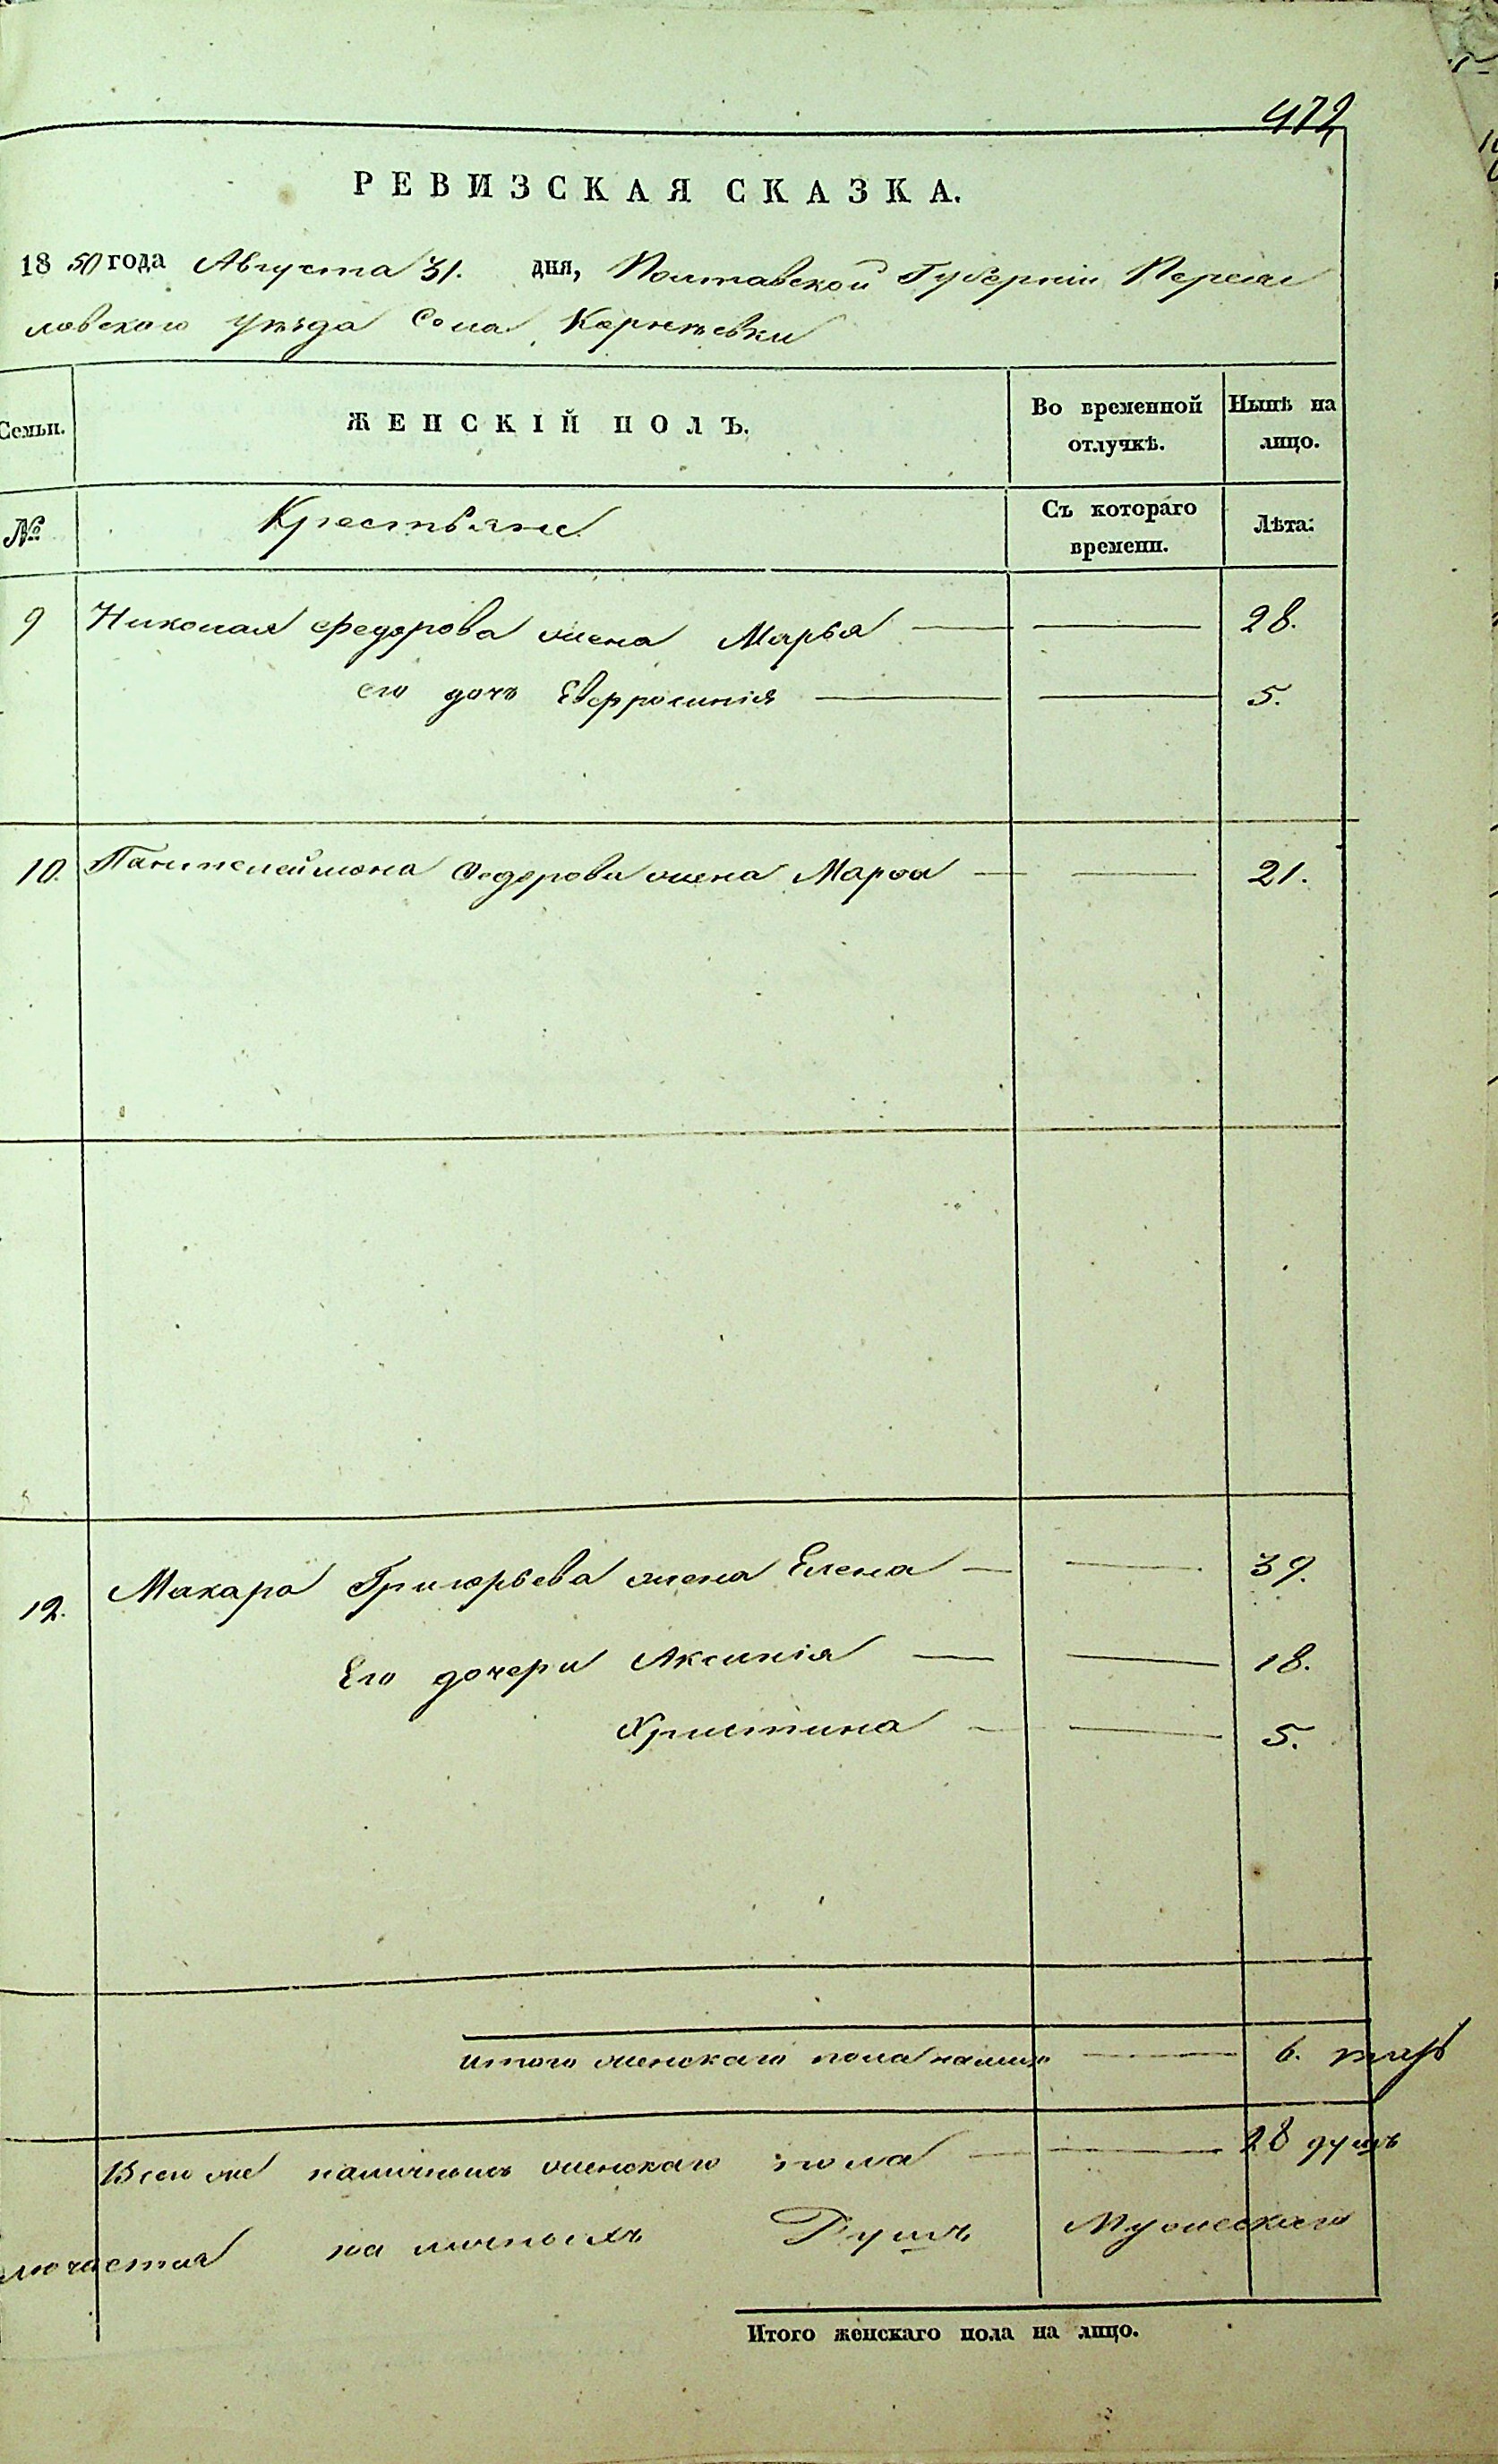 472
РЕВИЗСКАЯ СКАЗКА.
1850 года Августа 31. дня, Полтавской Губернiи Переяс
ловского Уѣзда Села
Семьи.
ЖЕНСКІЙ ПОЛЪ.
Во временной отлучкѣ.
Нынѣ на лицо.
№
Крестьяне
Съ котораго времени.
Лѣта:
9 Николая Федорова жена Марья — — 28.
его дочь Евфросинія — — 5.
10. Пантелеймона Ѳедорова жена Марѳа — — 21.
12. Макара Григорьева жена Елена — — 39.
Его дочери Аксинія — — 18.
Христина — — 5.
Итого женскаго пола налицо — 6.
Всего же наличныхъ женскаго пола — — 28 душъ
на личныхъ Душъ Мужескаго
Итого женскаго пола на лицо.